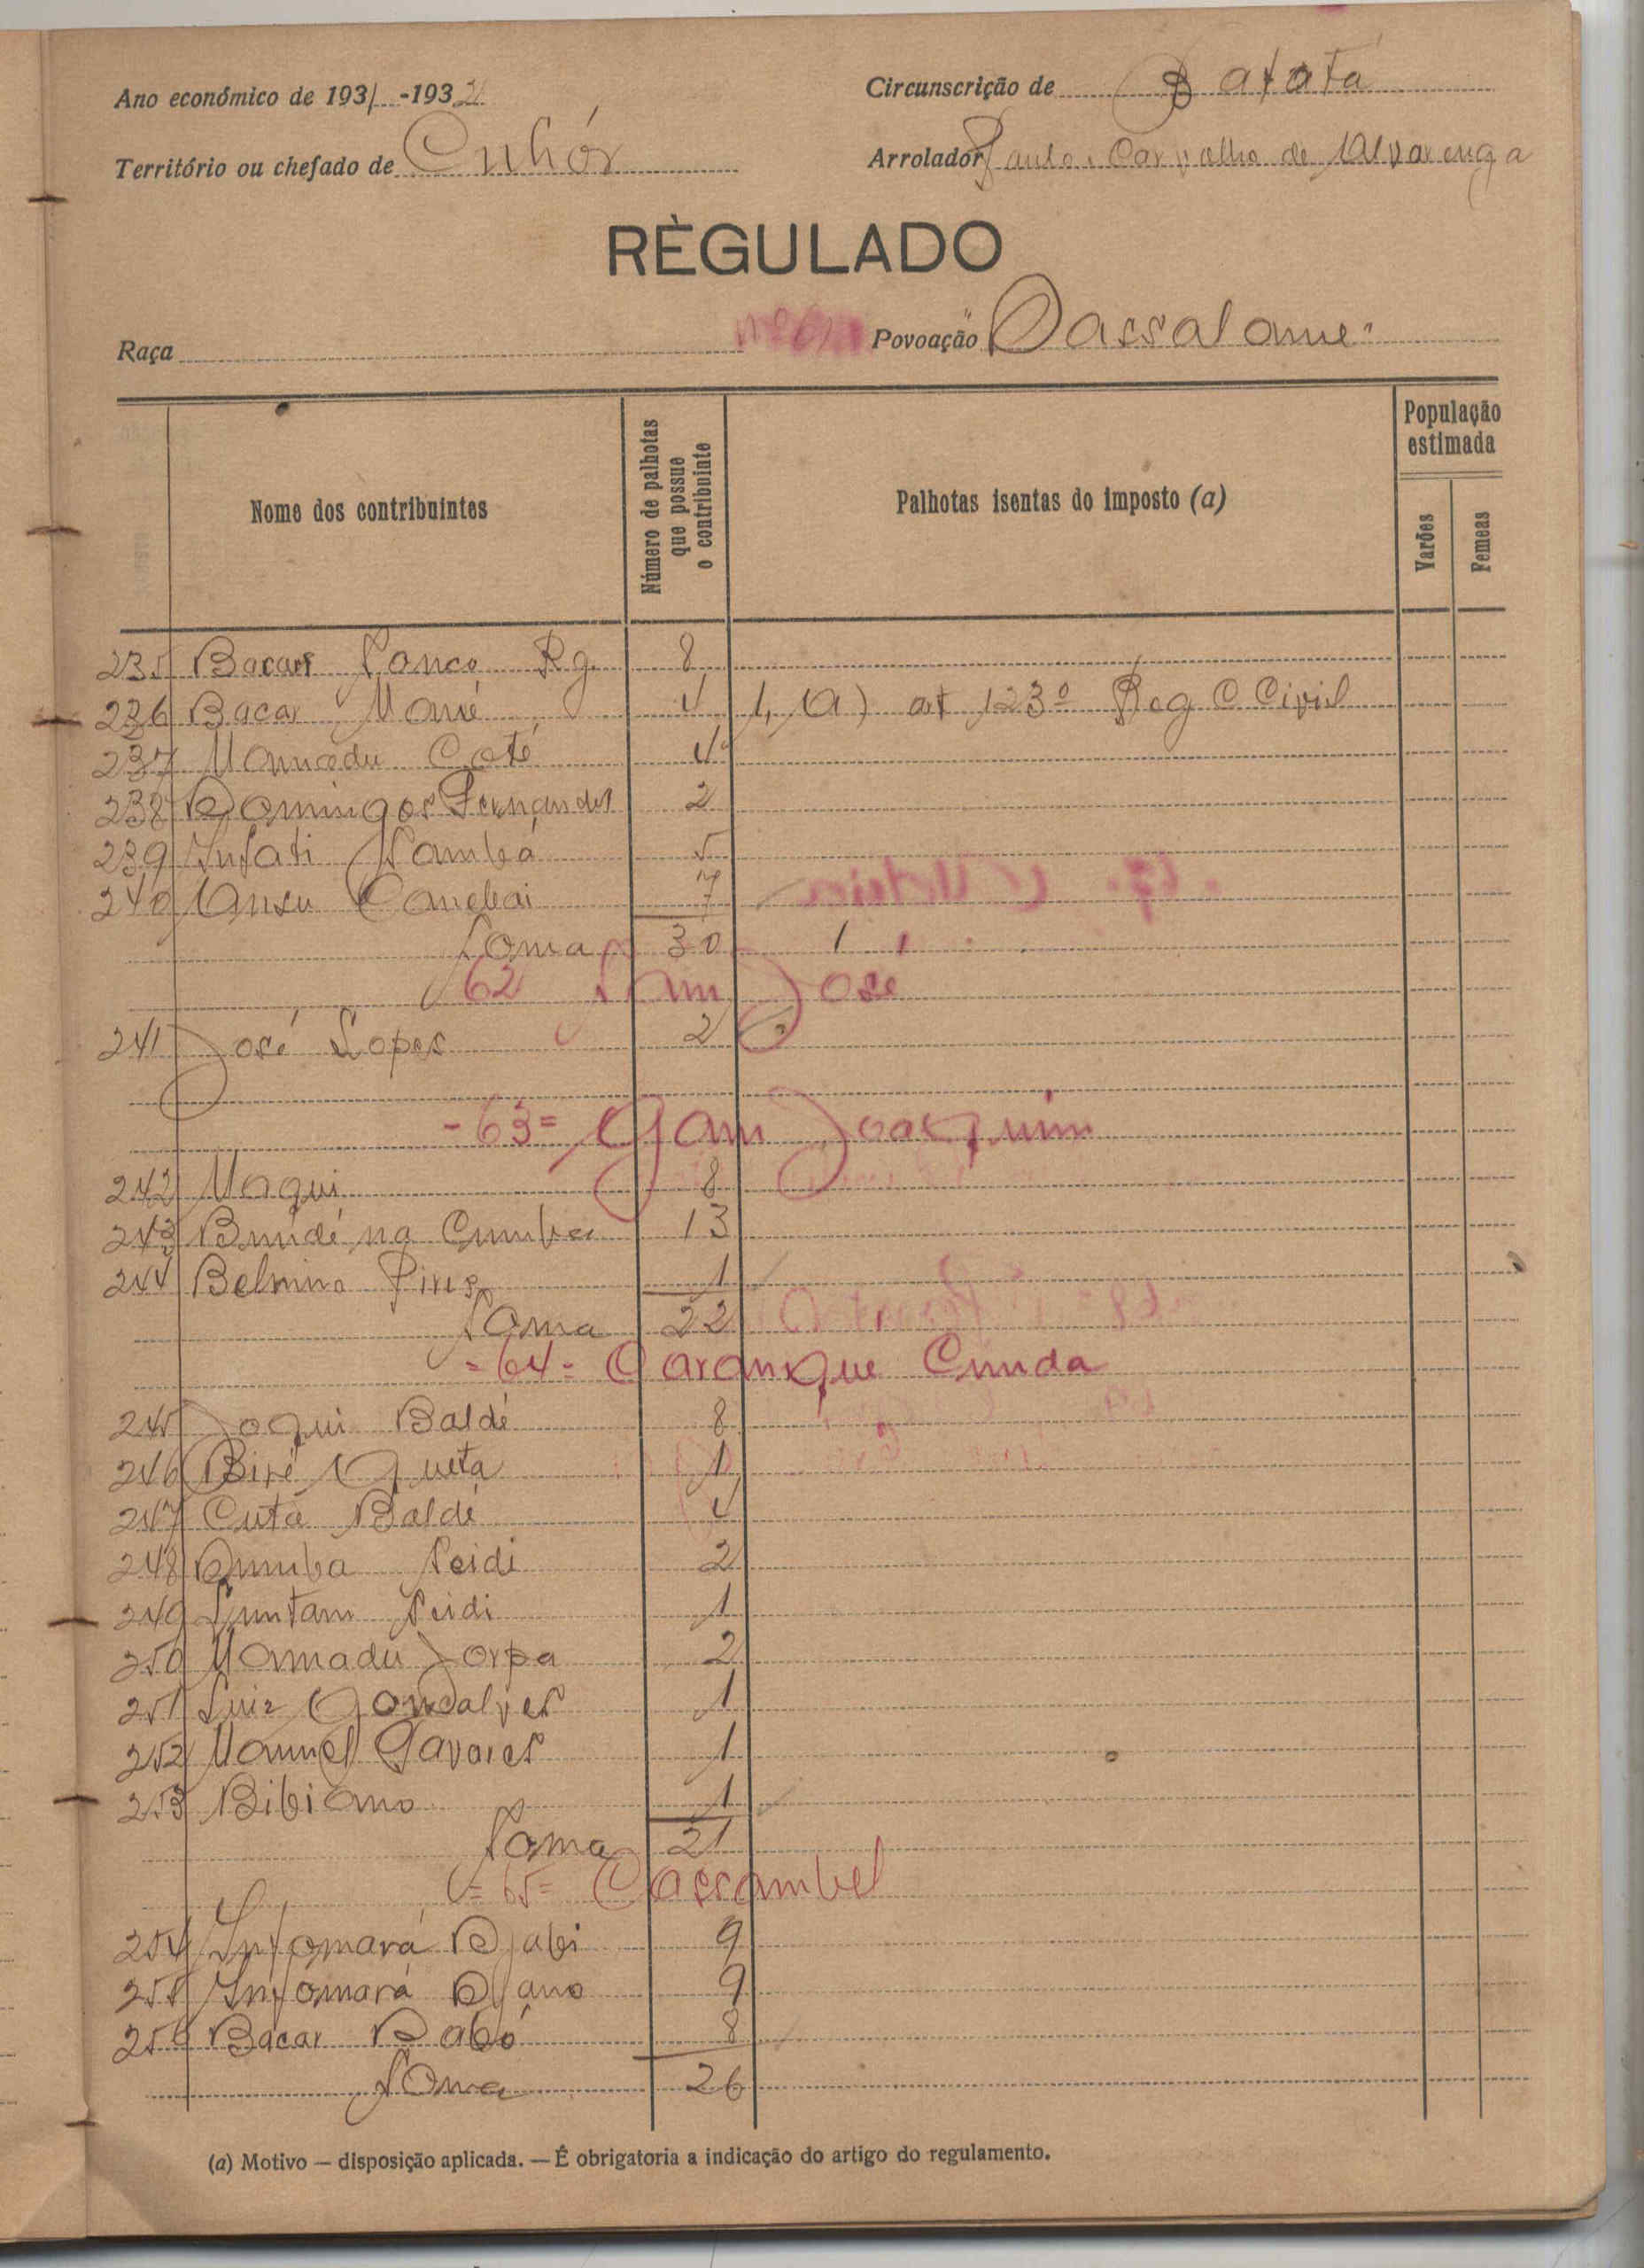 Ano económico de 1931-1932
Circunscrição de Bafatá
Território ou chefado de Cuhór
Arrolador Paulo Carvalho de Alvarenga
RÈGULADO
Raça
Povoação Dassalame
Nome dos contribuintes
Número de palhotas que possue o contribuinte
Palhotas isentas do imposto (a)
População estimada
Varões
Femeas
235 Bacar Sanca Rg. 8
236 Bacar Mané 4 1, (a) art 123º Reg C Civil
237 Mamadu Coté 4
238 Domingos Fernandes 2
239 Infati Sambá 5
240 Ansu Camebai 7
Soma 30 1
62 Sam José
241 José Lopes 2
-63= Gam Joaquim
242 Maqui 8
243 Bundé na Cumba 13
244 Belmiro Pires 1
Soma 22
=64= Caranque Cunda
245 Joqui Baldé 8
246 Biré Queta 1
247 Cuta Baldé 4
248 Demba Seidi 2
249 Suntam Seidi 1
250 Mamadu Jorpa 2
251 Luiz Gonçalves 1
252 Manuel Tavares 1
253 Bibiano 1
Soma 21
=65= Cassambel
254 Infomará Djabi 9
255 Infomará Djano 9
256 Bacar Dabó 8
Soma 26
(a) Motivo — disposição aplicada. — É obrigatoria a indicação do artigo do regulamento.